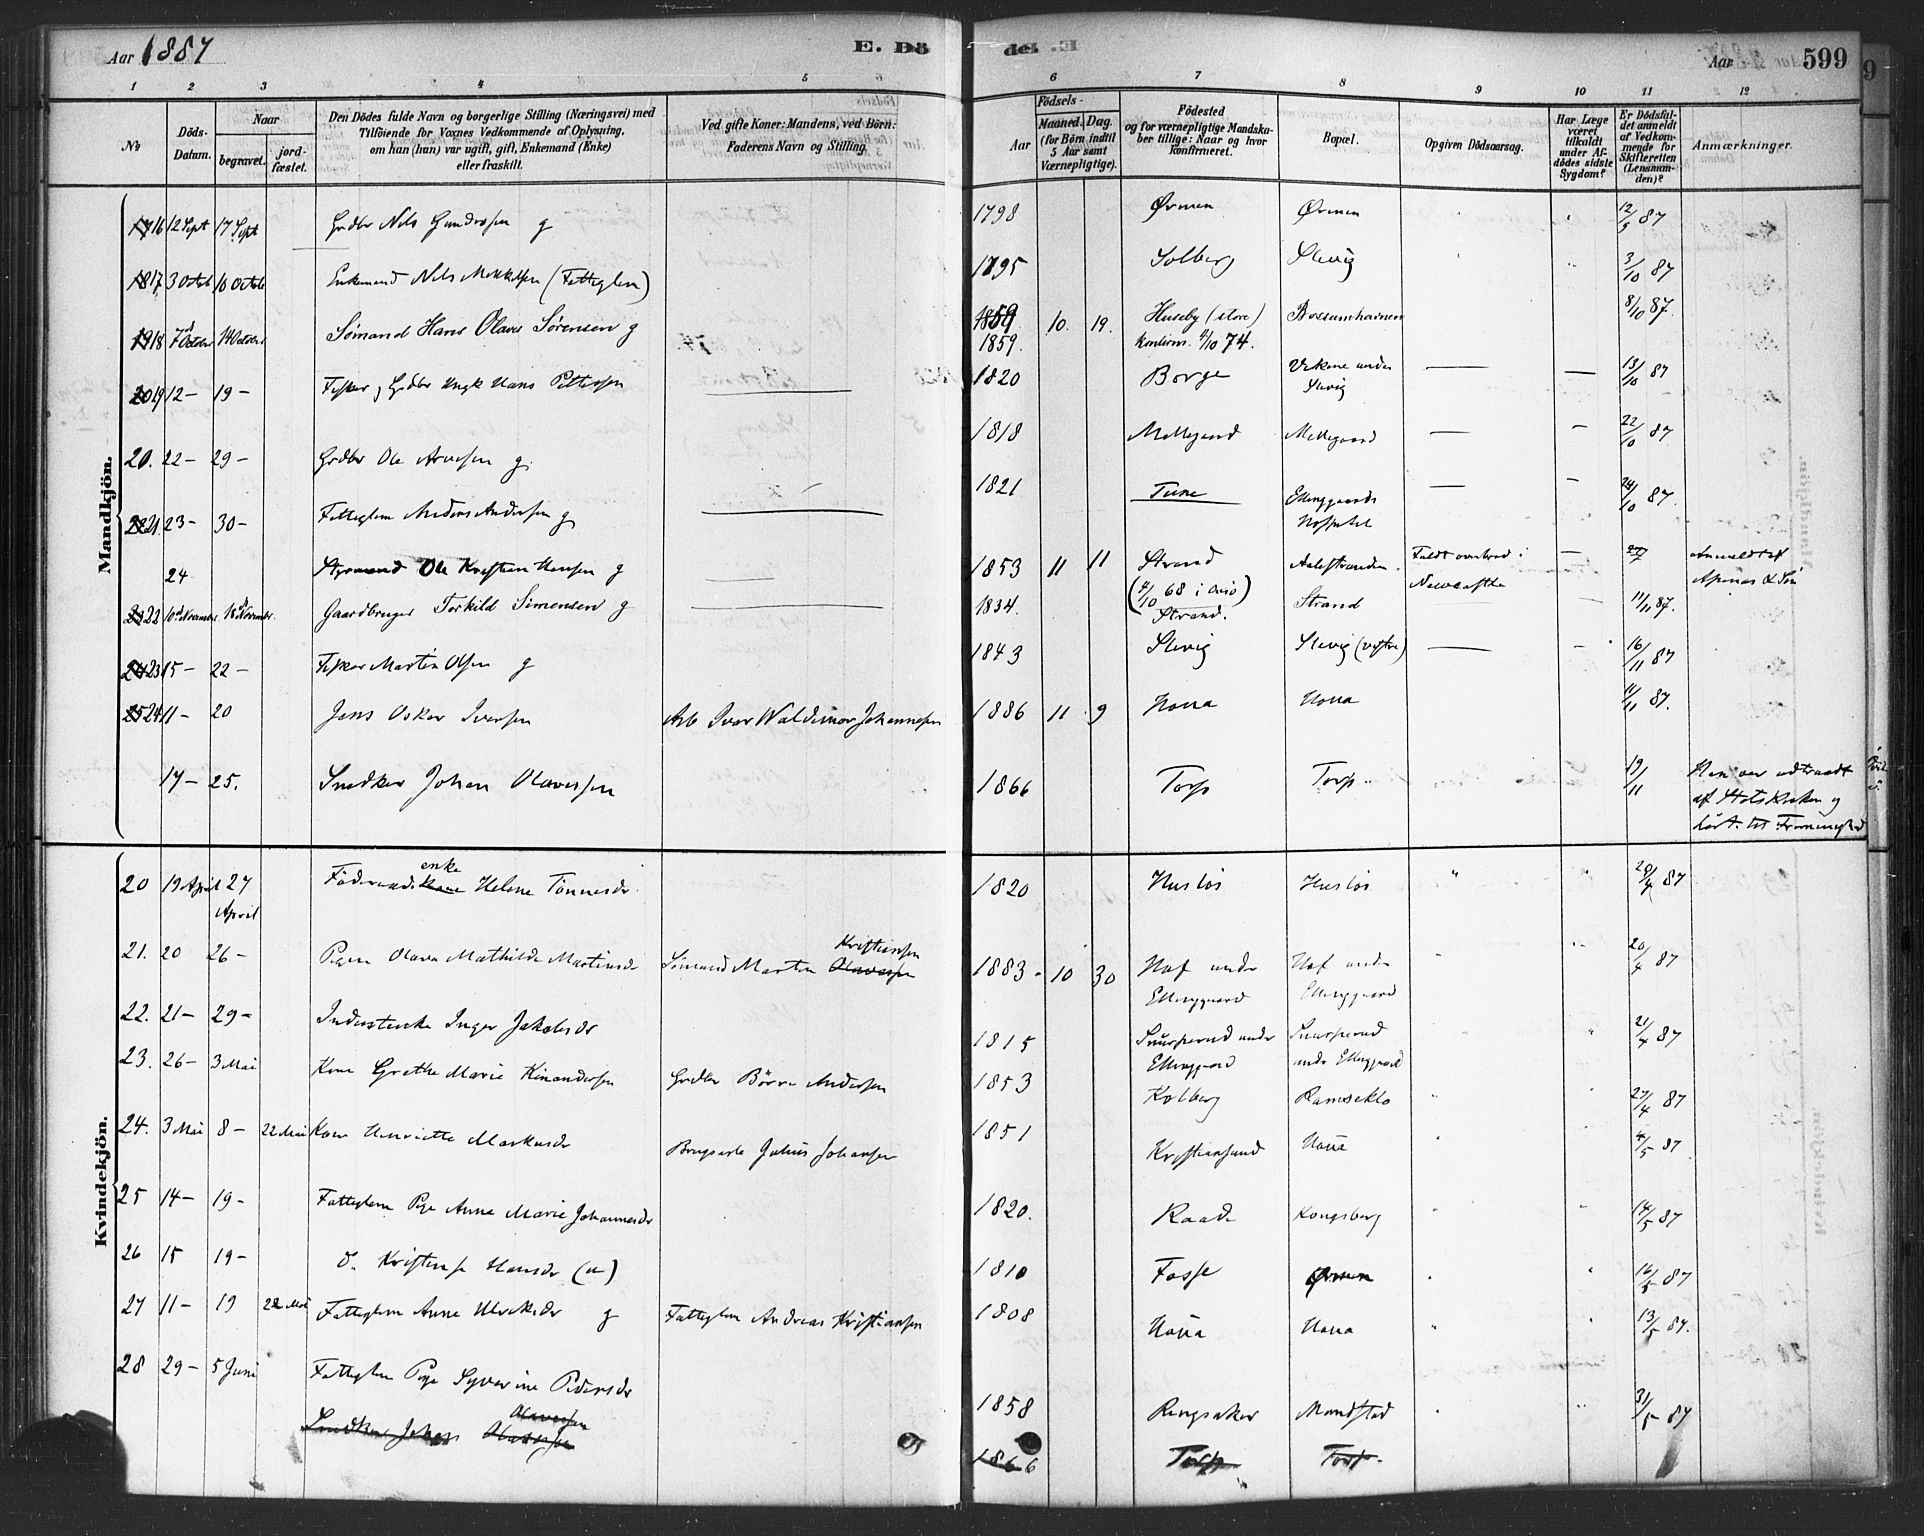 Aar 1887
E. Dö
del .E
Aar
599
1 2 3 4 5 6
6 7 8 9 10 11 12
No
Döds-Datum.
Naar
begravet.
jord-fæstet.
Den Dödes fulde Navn og borgerlige Stilling (Næringsvei) med
Tilföiende for Voxnes Vedkommende af Oplysning,
om han (hun) var ugift, gift, Enkemand (Enke)
eller fraskilt.
Ved gifte Koner: Mandens, ved Börn:
Faderens Navn og Stilling.
Födsels-
Aar
Maaned. Dag.
(for Börn indtil
5 Aar samt
Værnepligtige).
Födested
og for værnepligtige Mandska-
ber tillige: Naar og hvor
konfirmeret.
Bopæl.
Opgiven Dödsaarsag.
Har Læge
været
tilkaldt
under Af-
dödes sidste
Sygdom?
Er Dödsfal-
det anmeldt
af Vedkom-
mende for
Skifteretten
(Lensman-
den)?
Anmærkninger.
Mandkjön.
16 12 Sept 17 Sept Grdbr Nils Gundersen g 1798 Ørmen Ørmen 12/9 87
17 3 Octob 10 Octob Enkemand Nils Mikkelsen (Fatteglem) 1795 Solberg Slevig 3/10 87
18 7d October 14 October Sömand Hans Olaves Sörensen g 1859 10. 19. Huseby (store) 8/10 87.
1859. konfirm. /10 74.
19 12 – 19 – Fisker, Grdbr Ungk Hans Pettersen 1820 Borge under Slevig — — 13/10 87
20. 22 – 29 – Grdbr Ole Arvesen g. 1818 Mellegaard Mellegaard — – 22/10 87.
21 23 – 30 – Fatteglem Anders Andersen g 1821 Tune Ellinggaards Hospital — – 24/10 87.
24 Styrmand Ole Kristian Hansen g 1853 11 11 Strand Aalestranden Faldt overbord i Newcastle — Anmeldt af
(4/10 68 i Onsö) Apenas & Sön
22 10d November 18d November. Gaardbruger Torkild Simensen g 1834. Strand. Strand – 11/11 87.
23 15 – 22 – Fisker Martin Olsen g 1843 Slevig Slevig (vestre) — – 16/11 87
24 11 – 20 Jens Oskar Iversen Arb Ivar Waldemar Johannesen 1886 11 9 Houa Houa 11/11 87.
17 – 25. Snedker Johan Olavessen 1866 Torp Torp. 19/11 Han var udtraadt
af Statskirken og
hört. til Frimenighed
Kvindekjön.
20 19 April 27 April Föderaads enke Helene Tönnesdr 1820 Huslös Huslös " " 20/4 87
21. 20 26 – Pige Olava Mathilde Martinsdr Sömand Martin Kristiansen 1883 – 10 30 Haf under Ellinggaard Haf under Ellinggaard " " 20/4 87
22. 21 – 29 – Inderstenke Inger Jakobsdr 1815 Snurperud under Ellinggaard Snurperud under Ellinggaard " " 21/4 87
23. 26 – 3 Mai Kone Grethe Marie Kinandersen Grdbr Börre Andersen 1853 Kolberg Ramseklo " 27/4 87
24. 3 Mai 8 – 22 Mai Kone Henriette Markusdr Brugseele Julius Johansen 1851 Kristiansund Houa 4/5 87
25 14 – 19 – Fatteglem Pige Anne Marie Johannesdr 1820. Raade Kongsberg " " 14/5 87
26 15 19 – d. Kristense Hansdr (u) 1810 Fosse Ørmen 16/5 87
27 11 – 19 22 Mai Fatteglem Anne Ulriksdr g Fatteglem Andreas Kristiansen 1808 Houa Houa " 13/5 87.
28 29 – 5 Juni Fatteglem Pige Syverine Pedersdr 1858 Ringsaker Mandstad 31/5 87
Snedker Johan Olavessen 1866 Torp Torp.